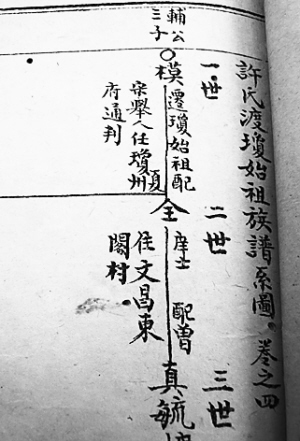 許氏渡瓊始祖族譜系圖
卷之四
一世
二世
三世
輔公
三子
模
遷瓊始祖配
項
宋舉人任瓊州
府通判
全
庠士
配曾
住文昌東
閣村
真毓